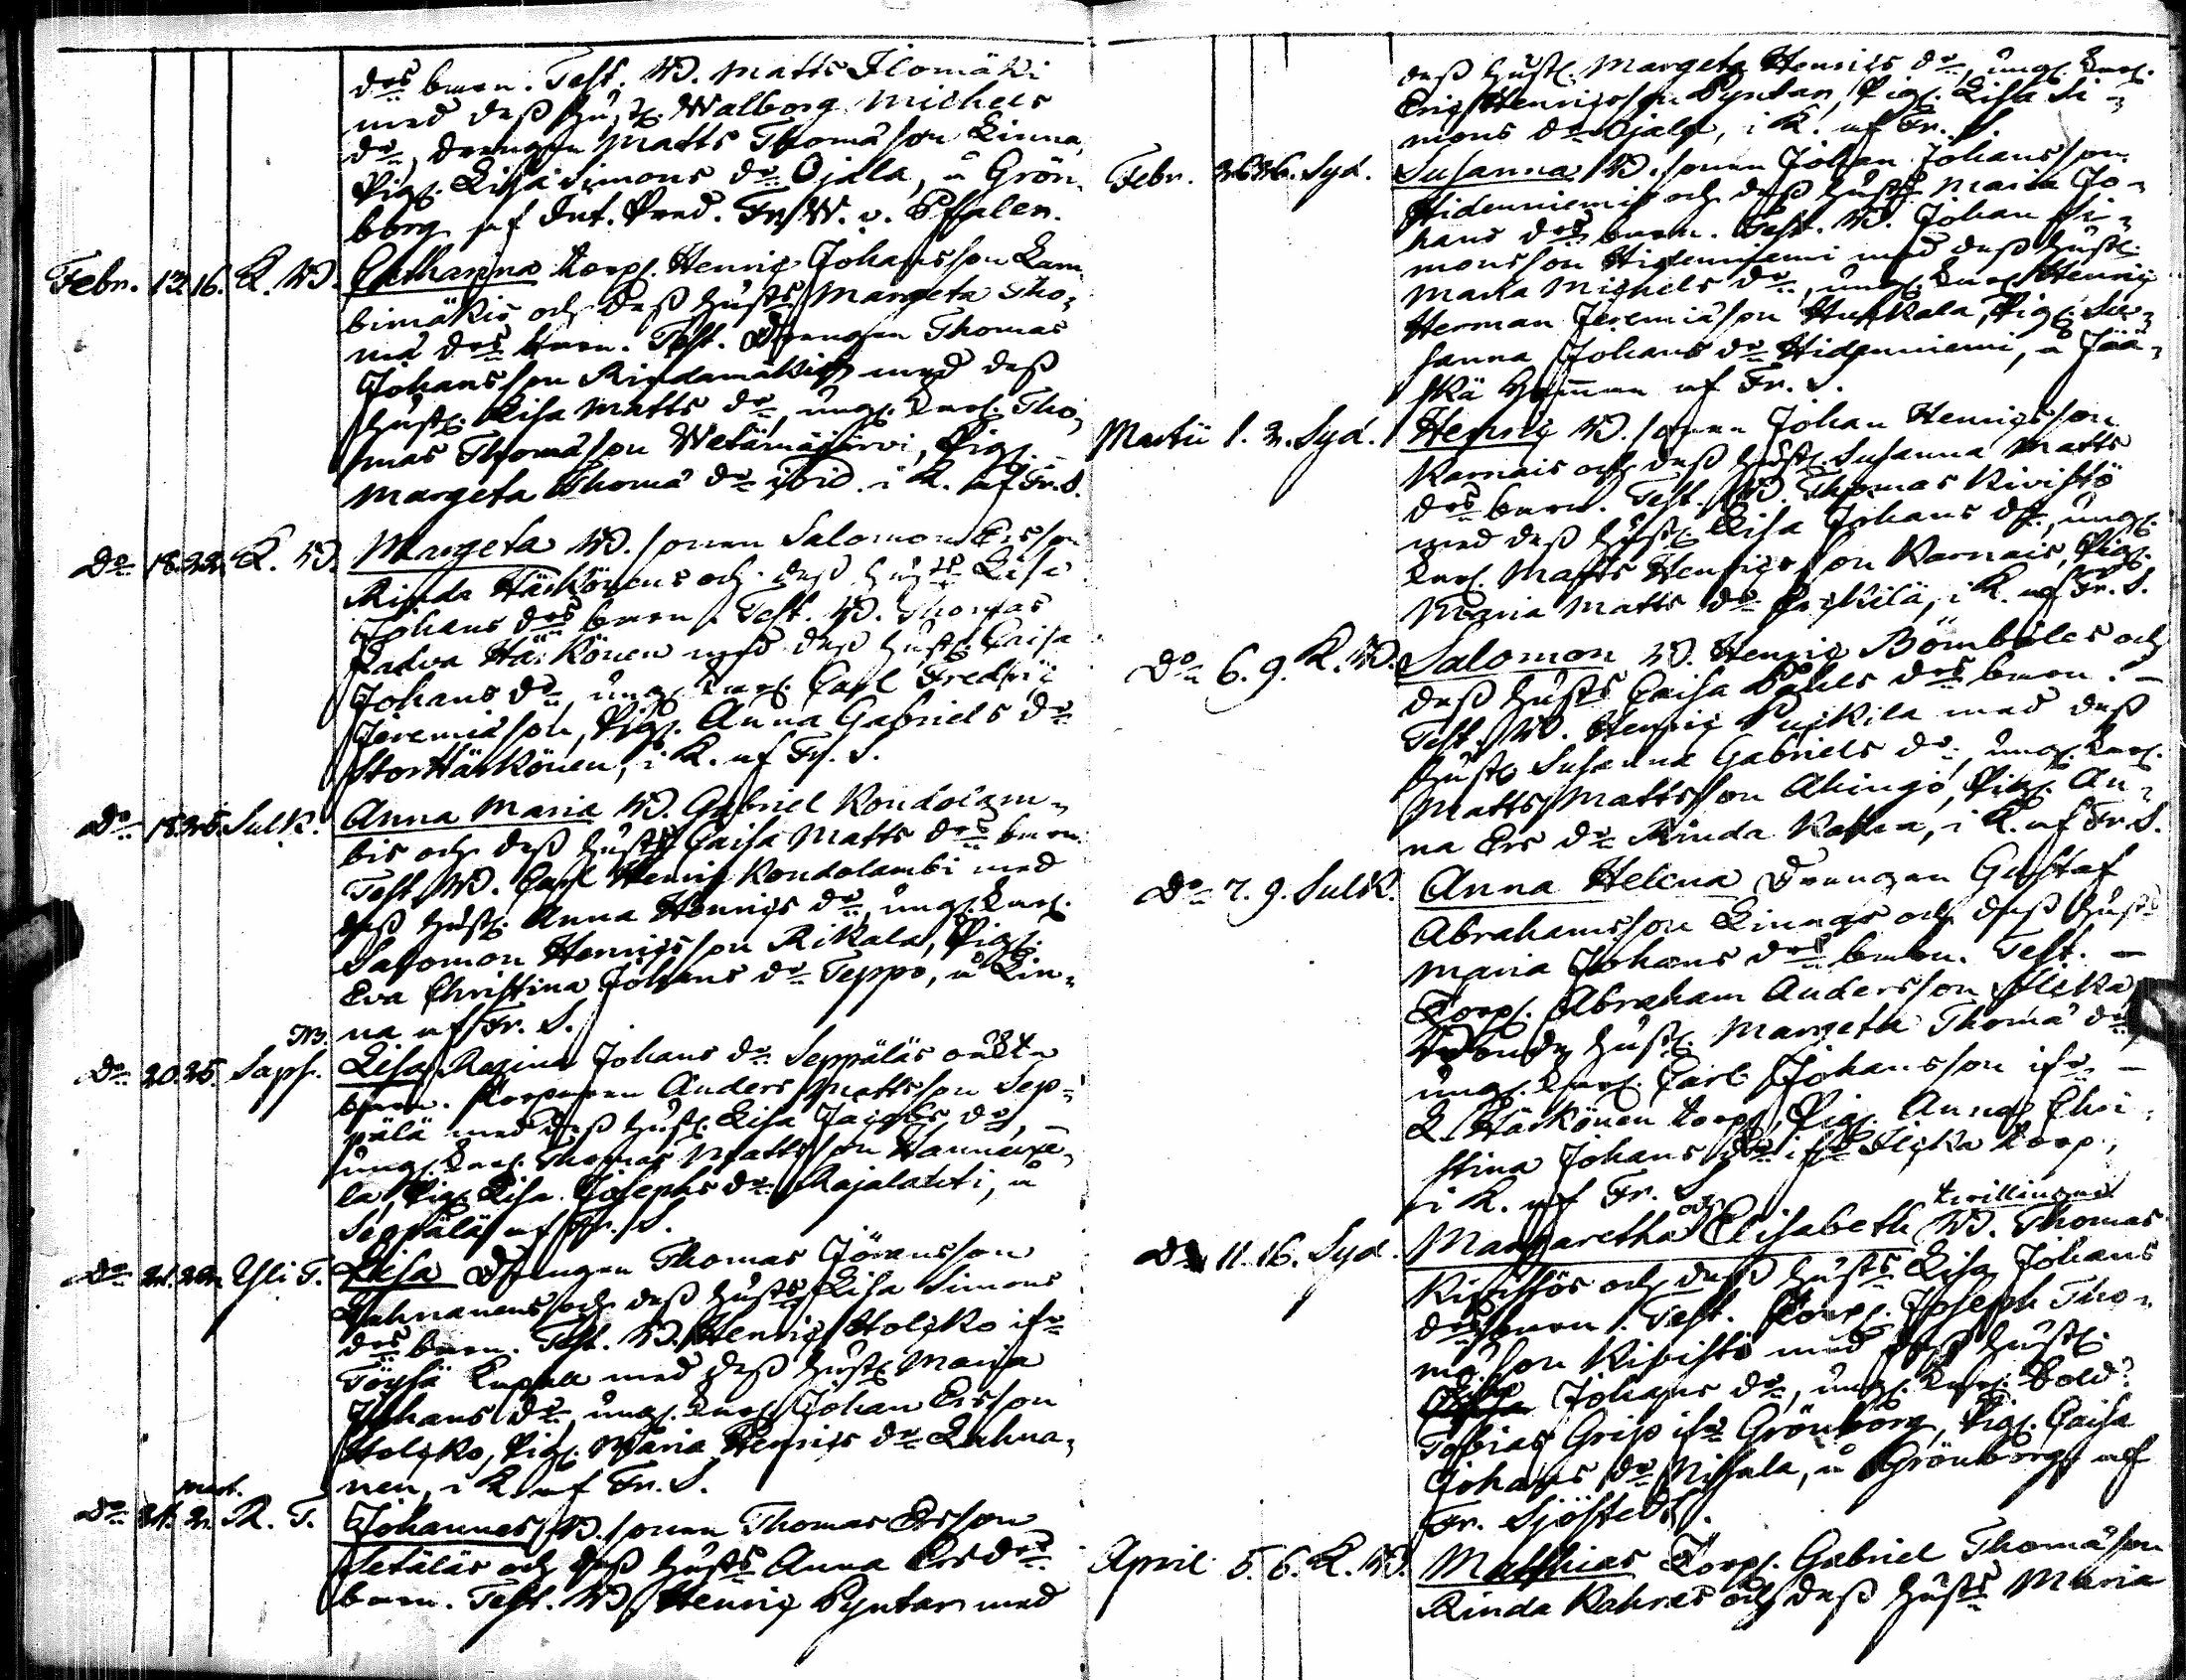 drs barn. Test. W. Matts Ilomäki
med dess hust. Walborg Michels
dr, drengen Matts Thomasson Linna,
Pig. Lisa Simons dr Ojala, i Grön-
borg af Fr. W. v. Pfalen.
Febr. 12. 16. K. W. Catharina torp. Henric Johansson Lam-
bimäkis och dess hustrs Margeta Tho-
mæ drs barn. Test. Drengen Thomas
Johansson Rindamäki med dess
hust. Lisa Matts dr, ung. Karl. Tho-
mas Thomasson Wetämäjärvi, Pig.
Margeta Thomæ dr ibid. i K. af Fr. S.
Do 18. 22. K. W. Margeta W. sonen Salomon Ersson
Rinda Härkönens och dess hustrs Lisa
Johans drs barn. Test. W. Thomas
Ladva Härkönen med dess hust. Caisa
Johans dr, ung. Karl. Carl Fredric
Jeremiæson, Pig. Anna Gabriels dr
Stor Härkönen, i K. af Fr. S.
Do 18. 25. Sulk. Anna Maria W. Gabriel Kondolam-
bis och dess hustrs Caisa Matts drs barn.
Test. W. Carl Henric Kondolambi med
dess hust. Anna Henrics dr, ung. Karl.
Salomon Henricsson Rikala, Pig.
Eva Christina Johans dr Teppo, i Lin-
na af Fr. S.
NB.
Do 20. 25. Saps. Lisa Regina Johans dr Seppäläs oäkta
barn. Torparen Anders Mattsson Sep-
pälä med dess hust. Lisa Jacobs dr,
ung. Karl. Thomas Mattsson Hannuxe-
la, Pig. Lisa Josephs dr Rajalahti, i
Seppälä af Fr. S.
Do 21. 22. Yli T. Lisa Drengen Thomas Jöransson
Luhnanens och dess hustrs Lisa Simons
drs barn. Test. W. Henric Holcko ifr
Töysä Capell med dess hust. Maria
Johans dr, ung. Karl. Johan Ersson
Holcko, Pig. Maria Henrics dr Luhna-
nen, i K. af Fr. S.
Mart.
Do 21. 2. R. T. Johannes W. sonen Thomas Ersson
Setäläs och dess hustrs Anna Ers drs
barn. Test. W. Henric Pyntar med
dess hust. Margeta Henrics dr, ung. Karl.
Eric Henricsson Pyntar, Pig. Lisa Si-
mons dr Ojala, i K. af Fr. S.
Febr. 26. 26. Syd. Susanna W. sonen Johan Johansson
Hidenniemis och dess hustrs Maria Jo-
hans drs barn. Test. W. Johan Si-
monsson Hidenniemi med dess hust.
Maria Michels dr, ung. Karl Henric
Herman Jeremiæson Huhkala, Pig. Su-
sanna Johans dr Hidenniemi, i Jää-
skä hemman af Fr. S.
Martii 1. 2. Syd. Henric W. sonen Johan Henricsson
Karnais och dess hust. Susanna Matts
drs barn. Test. W. Thomas Kivistö
med dess hust. Lisa Johans dr, ung.
Karl. Matts Henricsson Karnais, Pig.
Maria Matts dr, i K. af Fr. S.
Do 6. 9. K. W. Salomon W. Henric Bömböles och
dess hustrs Caisa Påhls drs barn. –
Test. W. Henric Puckila med dess
hust. Susanna Gabriels dr, ung. Karl.
Matts Mattsson Akingö, Pig. An-
na Ers dr Rinda Kahra, i K. af Fr. S.
Do 7. 9. Sulk. Anna Helena Drengen Gustaf
Abrahamsson Linnas och dess hustrs
Maria Johans drs barn. Test. –
Torp. Abraham Andersson Ilcka
hust. Margeta Thomæ dr,
ung. Karl. Carl Johansson ifr –
L. Härkönen torp, Pig. Anna Chri-
stina Johans dr ifr Ilcka torp,
i K. af Fr. S.
och tvillingar
Do 11. 16. Syd. Margaretha Elisabeth W. Thomas
Kivistös och dess hustrs Lisa Johans
drs barn. Test. Torp. Joseph Tho-
mæson Kivistö med dess hust.
Johans dr, ung. Karl. Sold.
Tobias Grip ifr Grönborg, Pig. Caisa
Johans dr Nisula, i Grönborg af
Fr. Sjöstedt.
April 5. 6. K. W. Matthias Torp. Gabriel Thomæson
Rinda Kahras och dess hustrs Maria